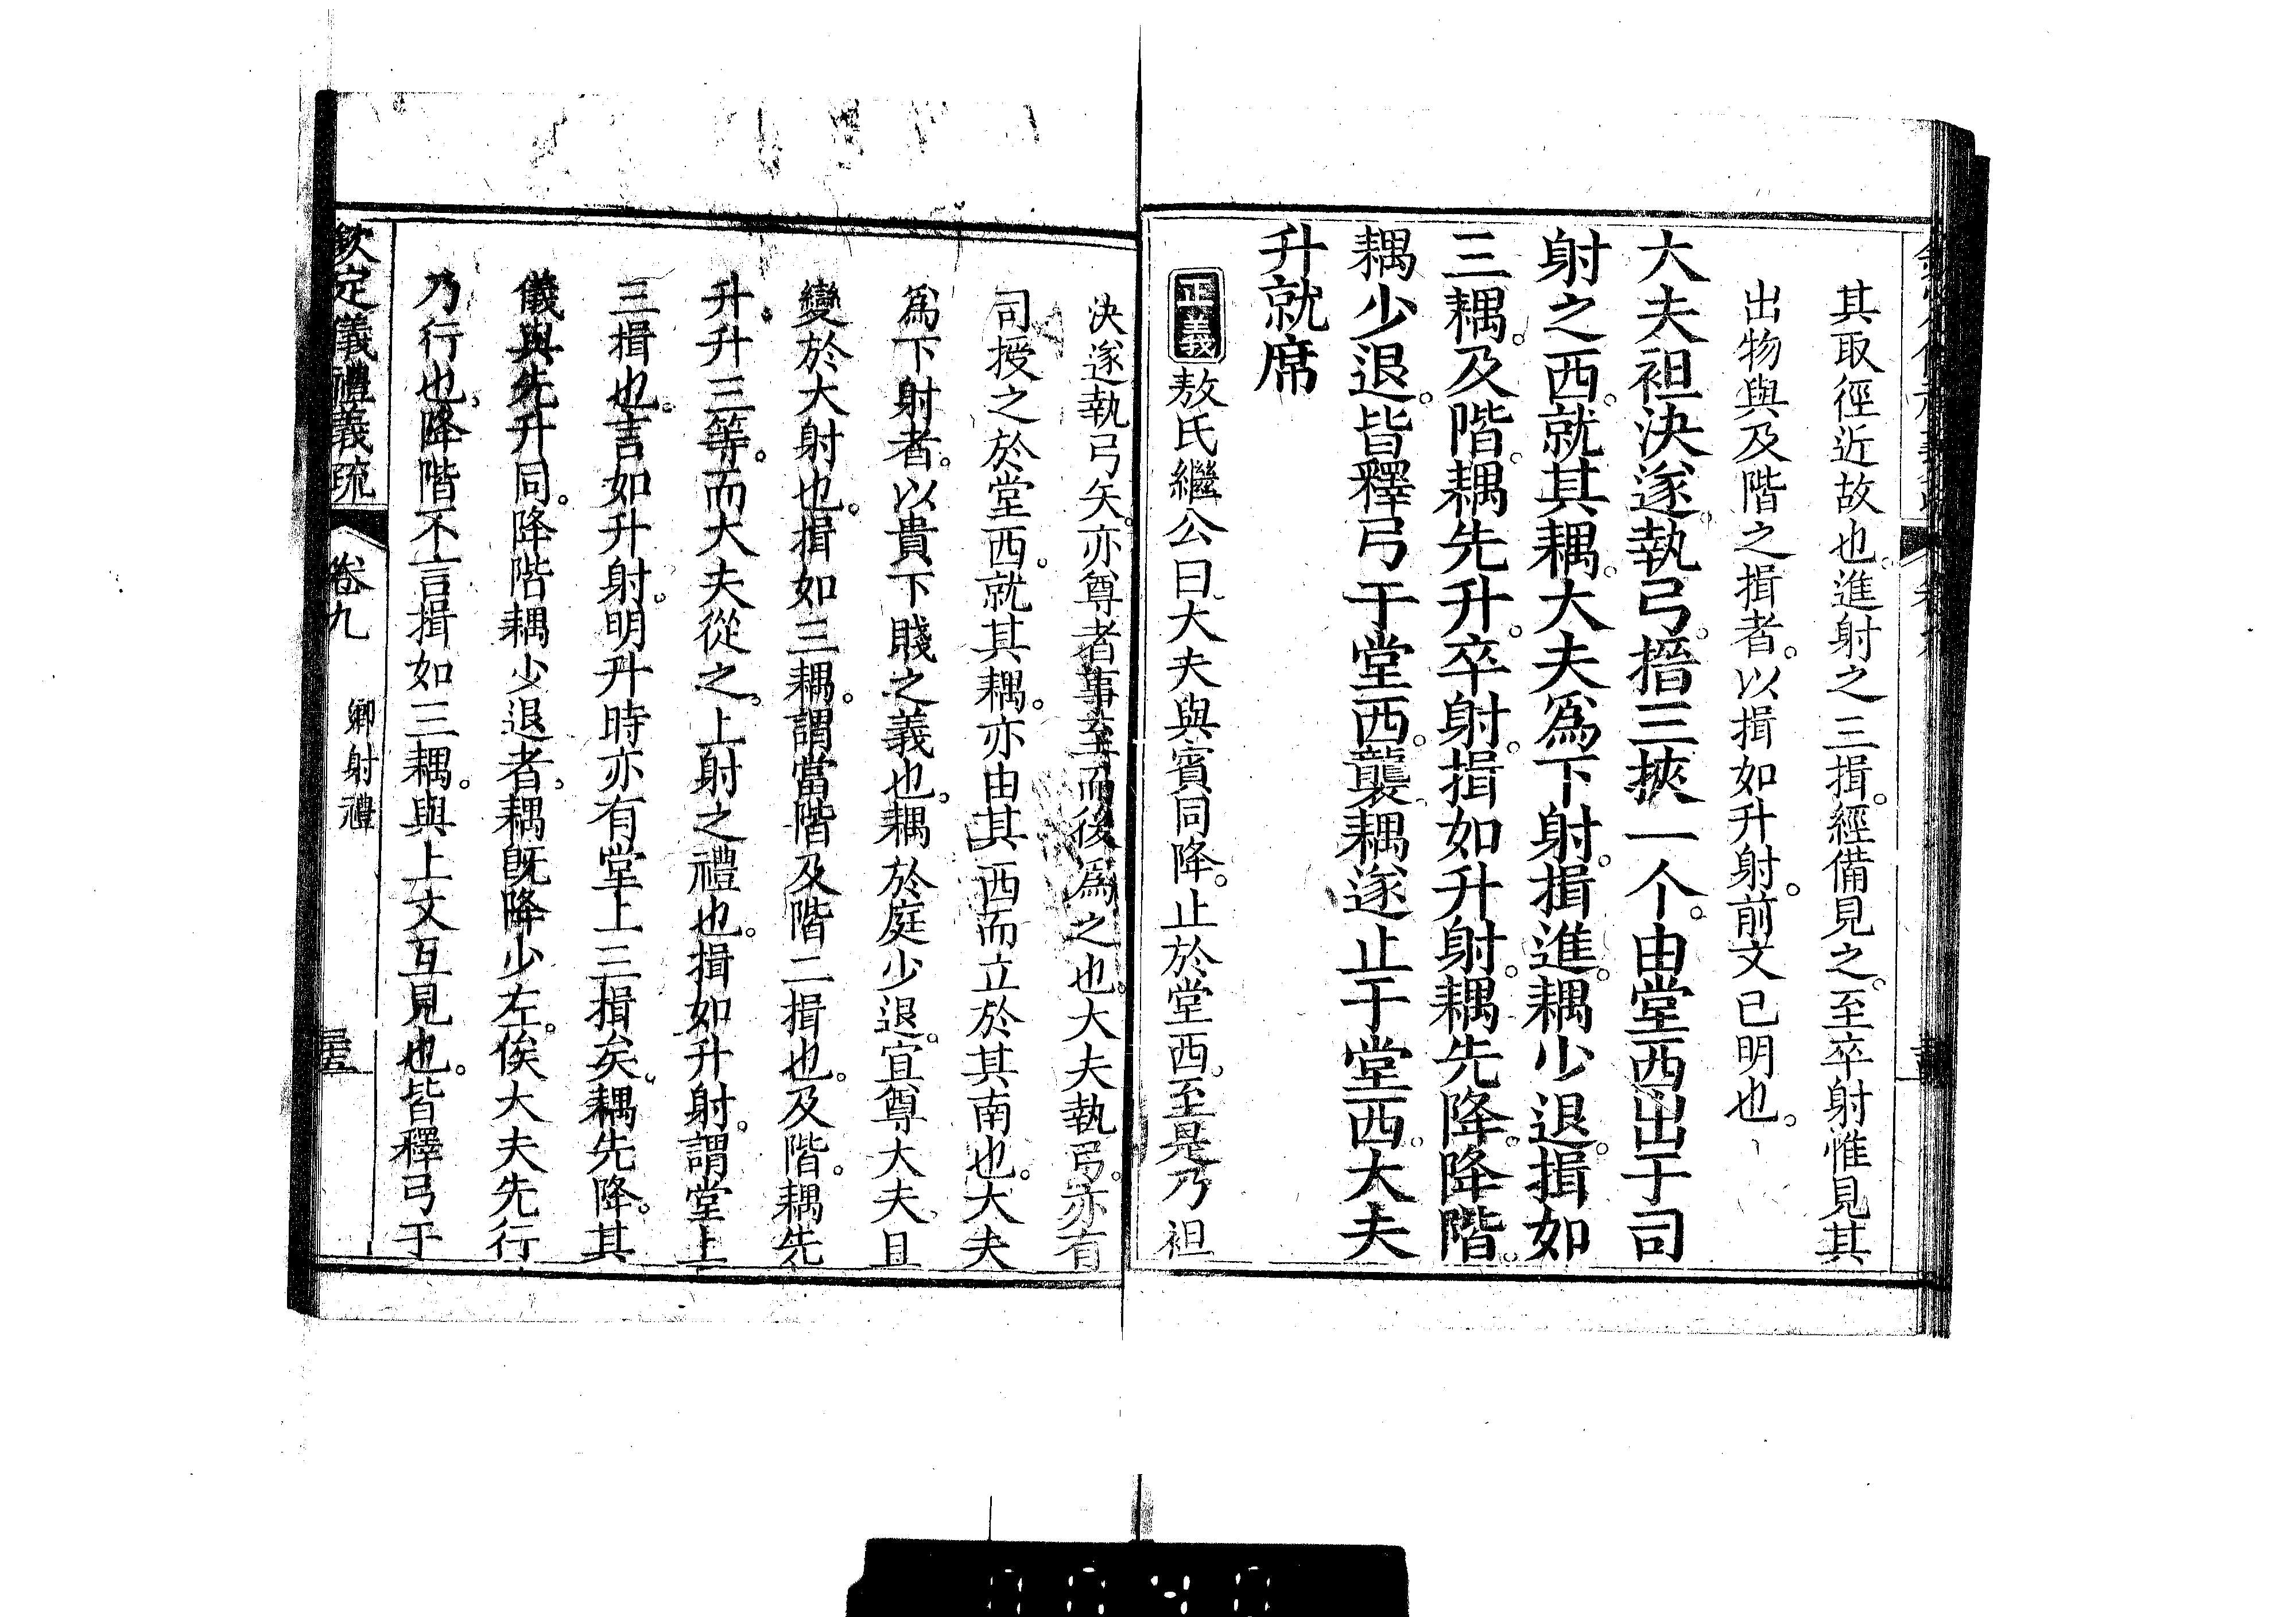 其取徑近故也進射之三揖。經備見之。至卒射惟見其
出物與及階之揖者。以揖如升射。前文已明也。
大夫袒決遂。執弓。搢三挾一个。由堂西出于司
射之西。就其耦。大夫爲下射。揖進。耦少退。揖如
三耦。及階。耦先升。卒射。揖如升射。耦先降。降階。
耦少退。皆釋弓于堂西。襲。耦遂止于堂西。大夫
升就席
正義敖氏繼公曰。大夫與賓同降。止於堂西。至是乃袒
決遂執弓矢。亦尊者事至而後爲之也。大夫執弓。亦有
司授之於堂西。就其耦。亦由其西而立於其南也。大夫
爲下射者。以貴下賤之義也。耦於庭少退。宜尊大夫。且
變於大射也。揖如三耦。謂當階及階二揖也。及階。耦先
升升三等。而大夫從之。上射之禮也。揖如升射。謂堂上
三揖也。言如升射。明升時亦有堂上三揖矣。耦先降。其
儀與先升同。降階耦少退者。耦既降少左。俟大夫先行
乃行也。降階不言揖如三耦。與上文互見也。皆釋弓于
欽定儀禮義疏 卷九 鄉射禮